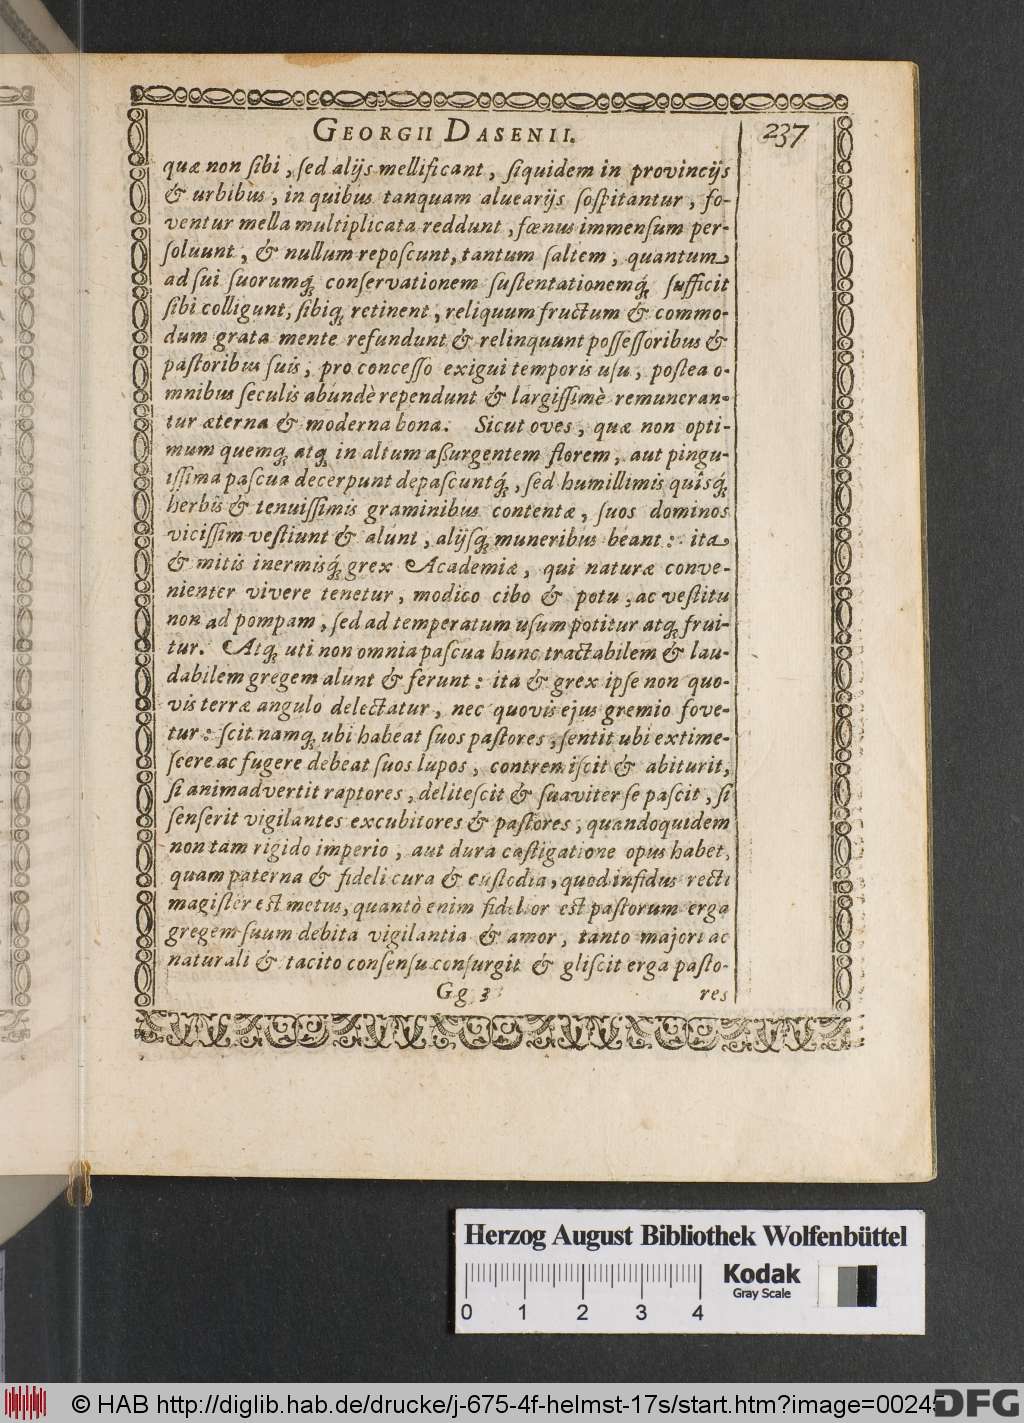 GEORGII DASENII.
237
quæ non ſibi, ſed alijs mellificant, ſiquidem in provincijs
& urbibus, in quibus tanquam aluearijs ſoſpitantur, fo-
ventur mella multiplicata reddunt, fœnus immenſum per-
ſoluunt, & nullum repoſcunt, tantum ſaltem, quantum
ad ſui ſuorumq́; conſervationem ſuſtentationemq́; ſufficit
ſibi colligunt, ſibiq; retinent, reliquum fructum & commo-
dum grata mente refundunt & relinquunt poſſeſſoribus &
paſtoribus ſuis, pro conceſſo exigui temporis uſu, poſtea o-
mnibus ſeculis abundè rependunt & largiſſimè remuneran-
tur æterna & moderna bona. Sicut oves, quæ non opti-
mum quemq; atq; in altum aßurgentem florem, aut pingu-
iſſima paſcua decerpunt depaſcuntq́;, ſed humillimis quîsq́;
herbis & tenuiſſimis graminibus contentæ, ſuos dominos
viciſſim veſtiunt & alunt, alijſq; muneribus beant: ita
& mitis inermisq́; grex Academiæ, qui naturæ conve-
nienter vivere tenetur, modico cibo & potu, ac veſtitu
non ad pompam, ſed ad temperatum uſum potitur atq; frui-
tur. Atq; uti non omnia paſcua hunc tractabilem & lau-
dabilem gregem alunt & ferunt: ita & grex ipſe non quo-
vis terræ angulo delectatur, nec quovis ejus gremio fove-
tur: ſcit namq; ubi habeat ſuos paſtores, ſentit ubi extime-
ſcere ac fugere debeat ſuos lupos, contremiſcit & abiturit,
ſi animadvertit raptores, deliteſcit & ſuaviter ſe paſcit, ſi
ſenſerit vigilantes excubitores & paſtores, quandoquidem
non tam rigido imperio, aut dura caſtigatione opus habet,
quam paterna & fideli cura & cuſtodia, quod infidus recti
magiſter eſt metus, quantò enim fidelior eſt paſtorum erga
gregem ſuum debita vigilantia & amor, tanto majori ac
naturali & tacito conſenſu conſurgit & gliſcit erga paſto-
Gg 3
res
Herzog August Bibliothek Wolfenbüttel
Kodak
Gray Scale
0 1 2 3 4
© HAB http://diglib.hab.de/drucke/j-675-4f-helmst-17s/start.htm?image=00245
DFG